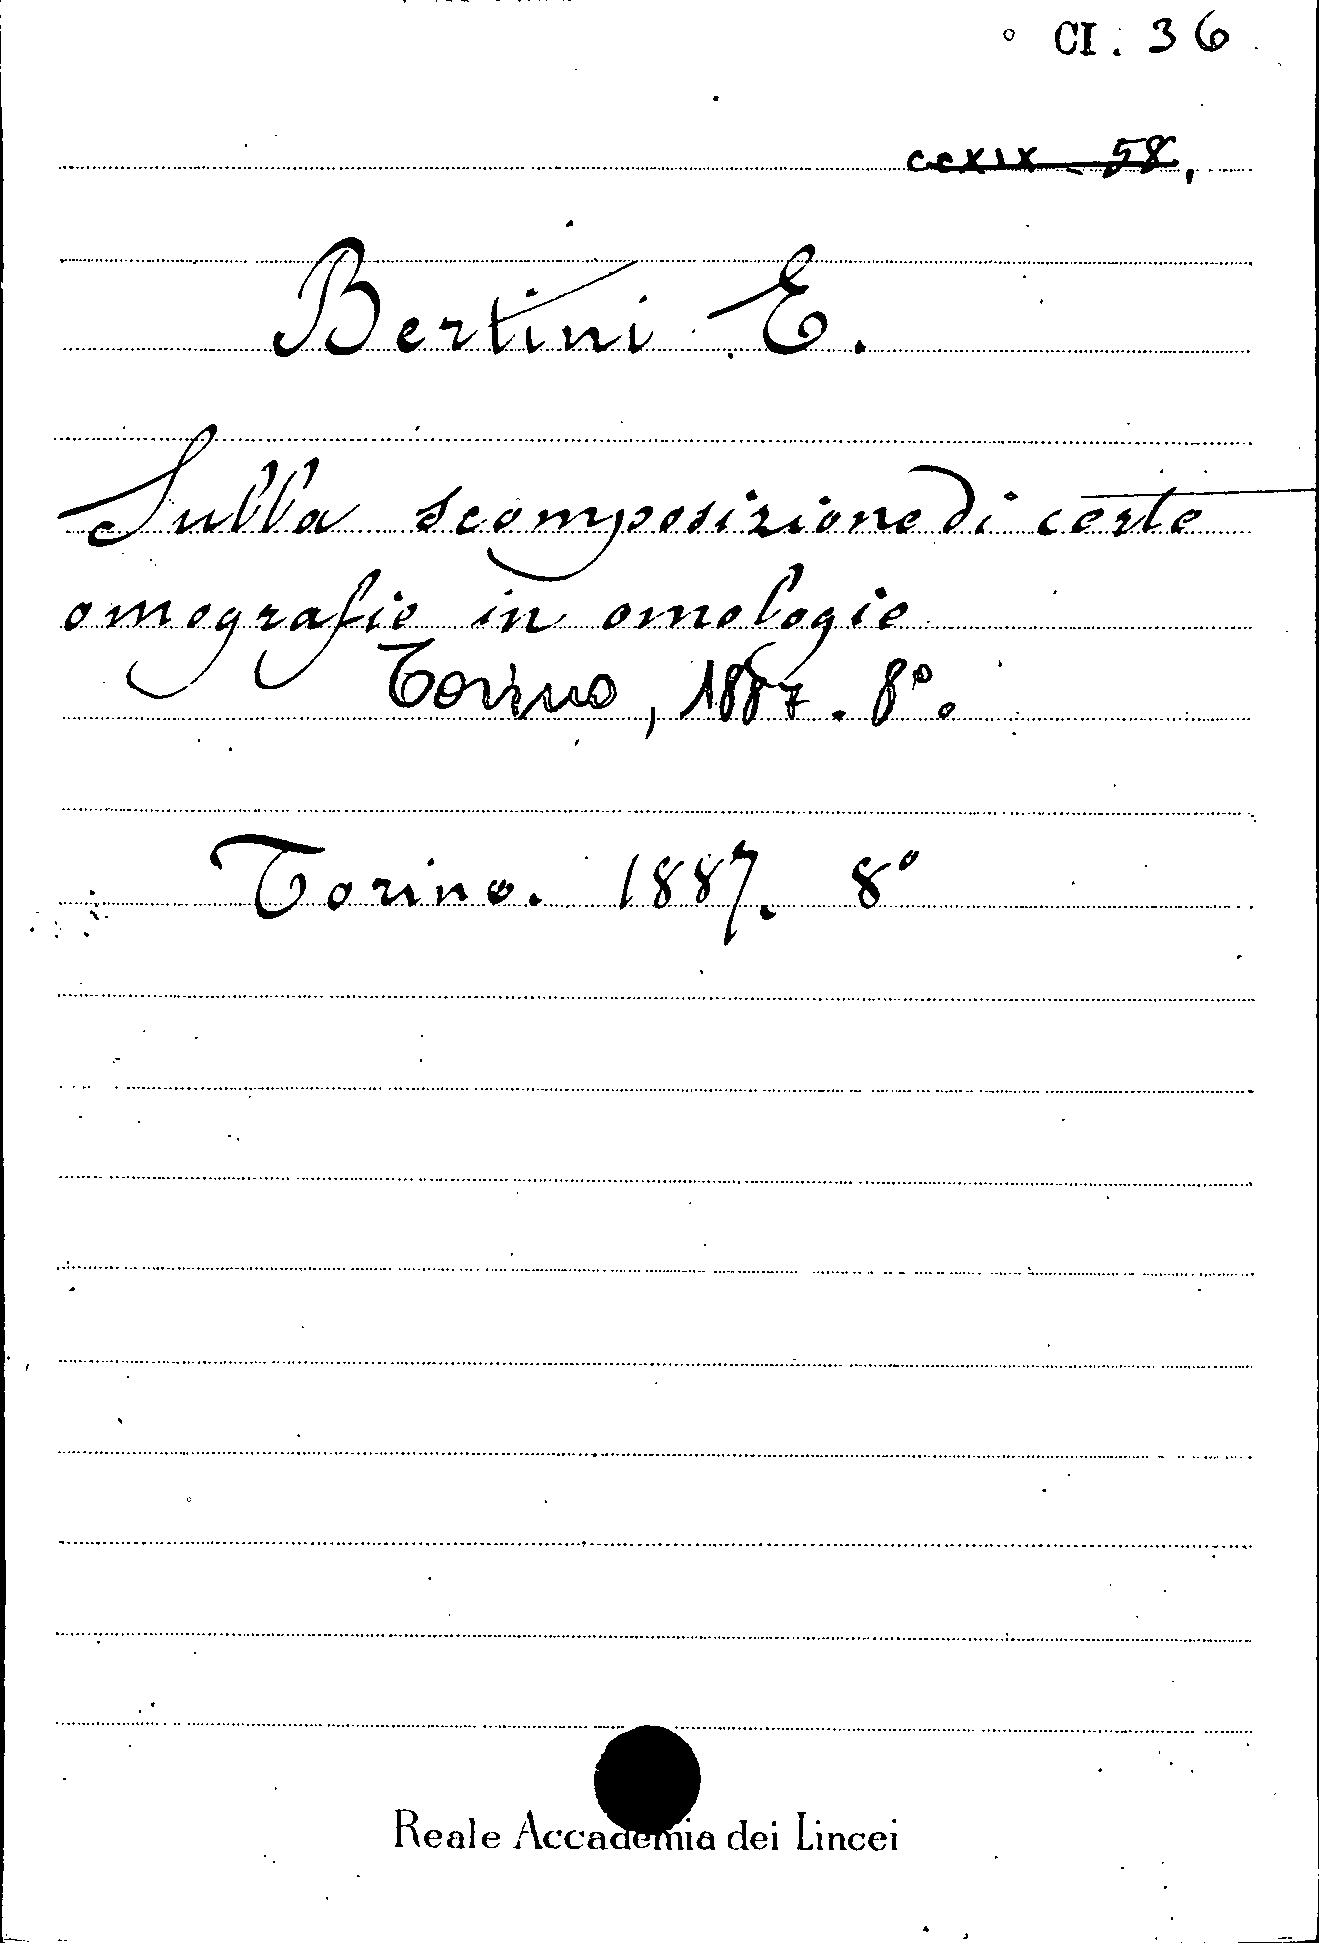 CI. 36
ccxix - 58.
Bertini E.
Sulla scomposizione di certe
omografie in omologie
Torino, 1887. 8º.
Torino. 1887. 8º
Reale Accademia dei Lincei